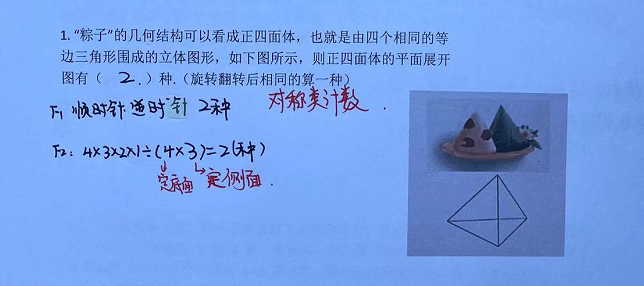 1. “粽子”的几何结构可以看成正四面体，也就是由四个相同的等
边三角形围成的立体图形，如下图所示，则正四面体的平面展开
图有（ 2. ）种.（旋转翻转后相同的算一种）
F1 顺时针 逆时针 2种
对称类计数.
F2: 4×3×2×1÷(4×3)=2(种)
定底面 定侧面.